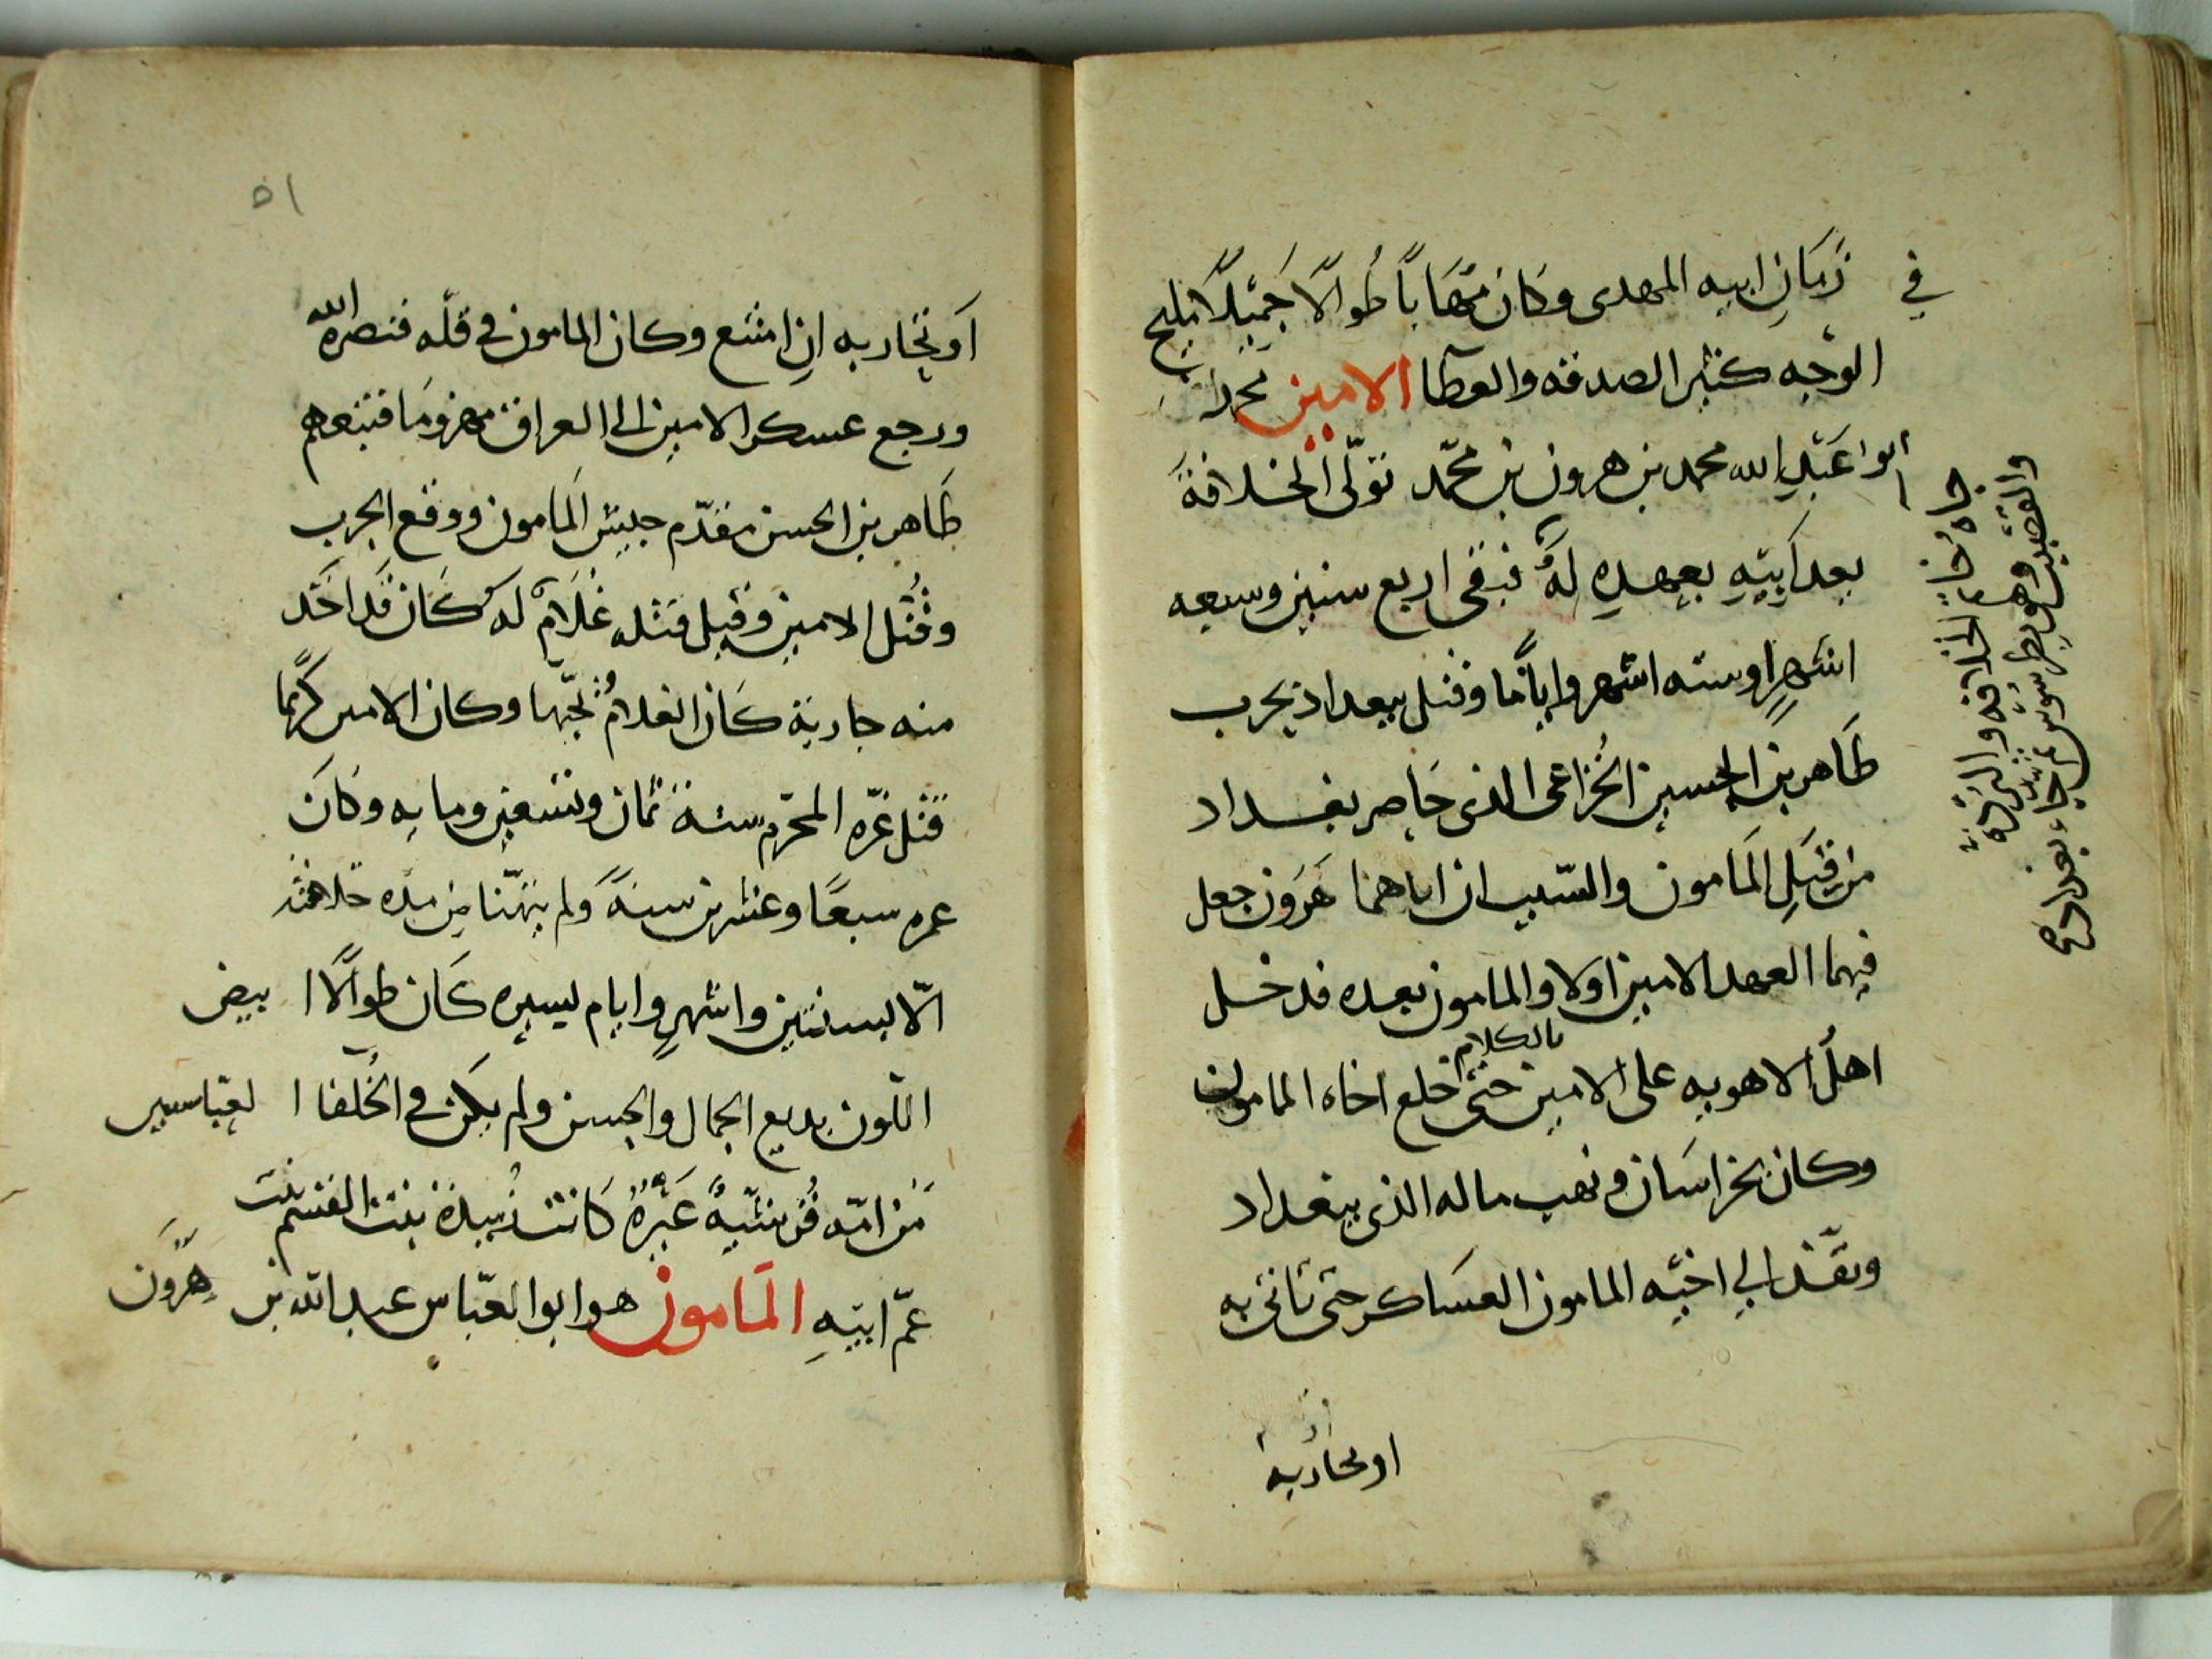 في زمَانِ ابيه المهدى وكان مُهَاباً طُوالًا جَمِيْلًا مليح
الوَجه كثير الصدقه والعطا الامين محمد
ابوا عَبْدِ الله محمد بن هرون بن محمّد توَلّى الخلافةَ
بعد ابيْهِ بعهدِهِ لهُ فبقى اربع سنين وسبعه
اشهرٍ اوسته اشهر واياما وقتل ببغداد بحرب
طَاهر بن الحسين الخُزاعى الذى حَاصر بغداد
من قِبَلِ المَامون والسّبب ان اباهما هَرون جعل
فيهما العهد الامين اولا والمامون بعده فدخل
اهلُ الاهويه على الامين بالكلام حتى خلع اخاه المامون
وكان بخراسَان ونهب ماله الذى ببغداد
ونفّذ الي اخيْه المامون العسَاكر حتى تاتى به
او تحاربه
جاه خاتم الخلافه والبردة
والقضيب وهو بطرسوس ثم جاء بغداد
٥١
اَو تحاربه انِ امتنع وكان المامون في قلّه فنصره الله
ورجع عسكر الامين الى العراق مهزومَا فتبعهم
طَاهر بن الحسن مقدّم جيش المَامون ووقع الحرب
وقُتل الامين وقيل قتله غلَامٌ له كَان قَد اخَذ
منه جارية كَان الغلامُ يُحبّها وكان الامين كريمًا
قتل غرّه المحَرّم سنة ثمان وتسعين ومايه وكانَ
عمره سبعًا وعشرين سنةً ولم يتهنّا مِن مدّه خلافته
الّا بسنتين واشهرٍ وايام يسيره كَان طوالًا ابيض
اللّون بديع الجمال والحسن ولم يكن في الخُلفا العباسيين
مَن امّه قُرشيّةٌ غَيْرهُ كَانت زُبيدة بنت القسم بنت
عمّ ابيْهِ المَامون هو ابو العبّاس عبد الله بن هَرون